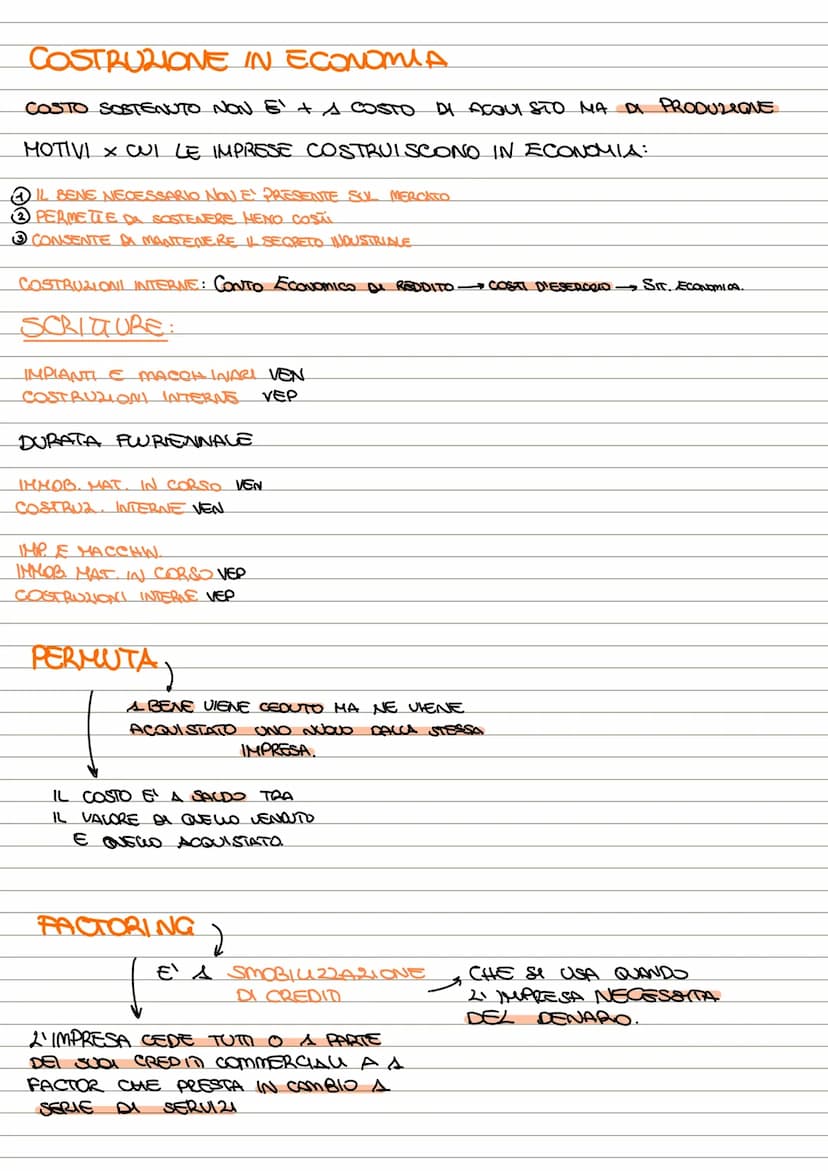 COSTRUZIONE IN ECONOMIA
COSTO SOSTENUTO NON E' + 1 COSTO DI ACQUISTO MA DI PRODUZIONE
MOTIVI x CUI LE IMPRESE COSTRUISCONO IN ECONOMIA:
1 IL BENE NECESSARIO NON E' PRESENTE SUL MERCATO
2 PERMETTE DI SOSTENERE MENO COSTI
3 CONSENTE DI MANTENERE IL SEGRETO INDUSTRIALE
COSTRUZIONI INTERNE: CONTO ECONOMICO DI REDDITO → COSTI D'ESERCIZIO → SIT. ECONOMICA.
SCRITTURE:
IMPIANTI E MACCHINARI VEN
COSTRUZIONI INTERNE VEP
DURATA PLURIENNALE
IMMOB. MAT. IN CORSO VEN
COSTRUZ. INTERNE VEN
IMP. E MACCHIN.
IMMOB. MAT. IN CORSO VEP
COSTRUZIONI INTERNE VEP
PERMUTA
1 BENE VIENE CEDUTO MA NE VIENE
ACQUISTATO UNO NUOVO DALLA STESSA
IMPRESA.
IL COSTO E' 1 SALDO TRA
IL VALORE DI QUELLO VENDUTO
E QUELLO ACQUISTATO
FACTORING
E' 1 SMOBILIZZAZIONE
DI CREDITI
CHE SI USA QUANDO
L'IMPRESA NECESSITA
DEL DENARO.
L'IMPRESA CEDE TUTTI O 1 PARTE
DEI SUOI CREDITI COMMERCIALI A 1
FACTOR CHE PRESTA IN CAMBIO 1
SERIE DI SERVIZI